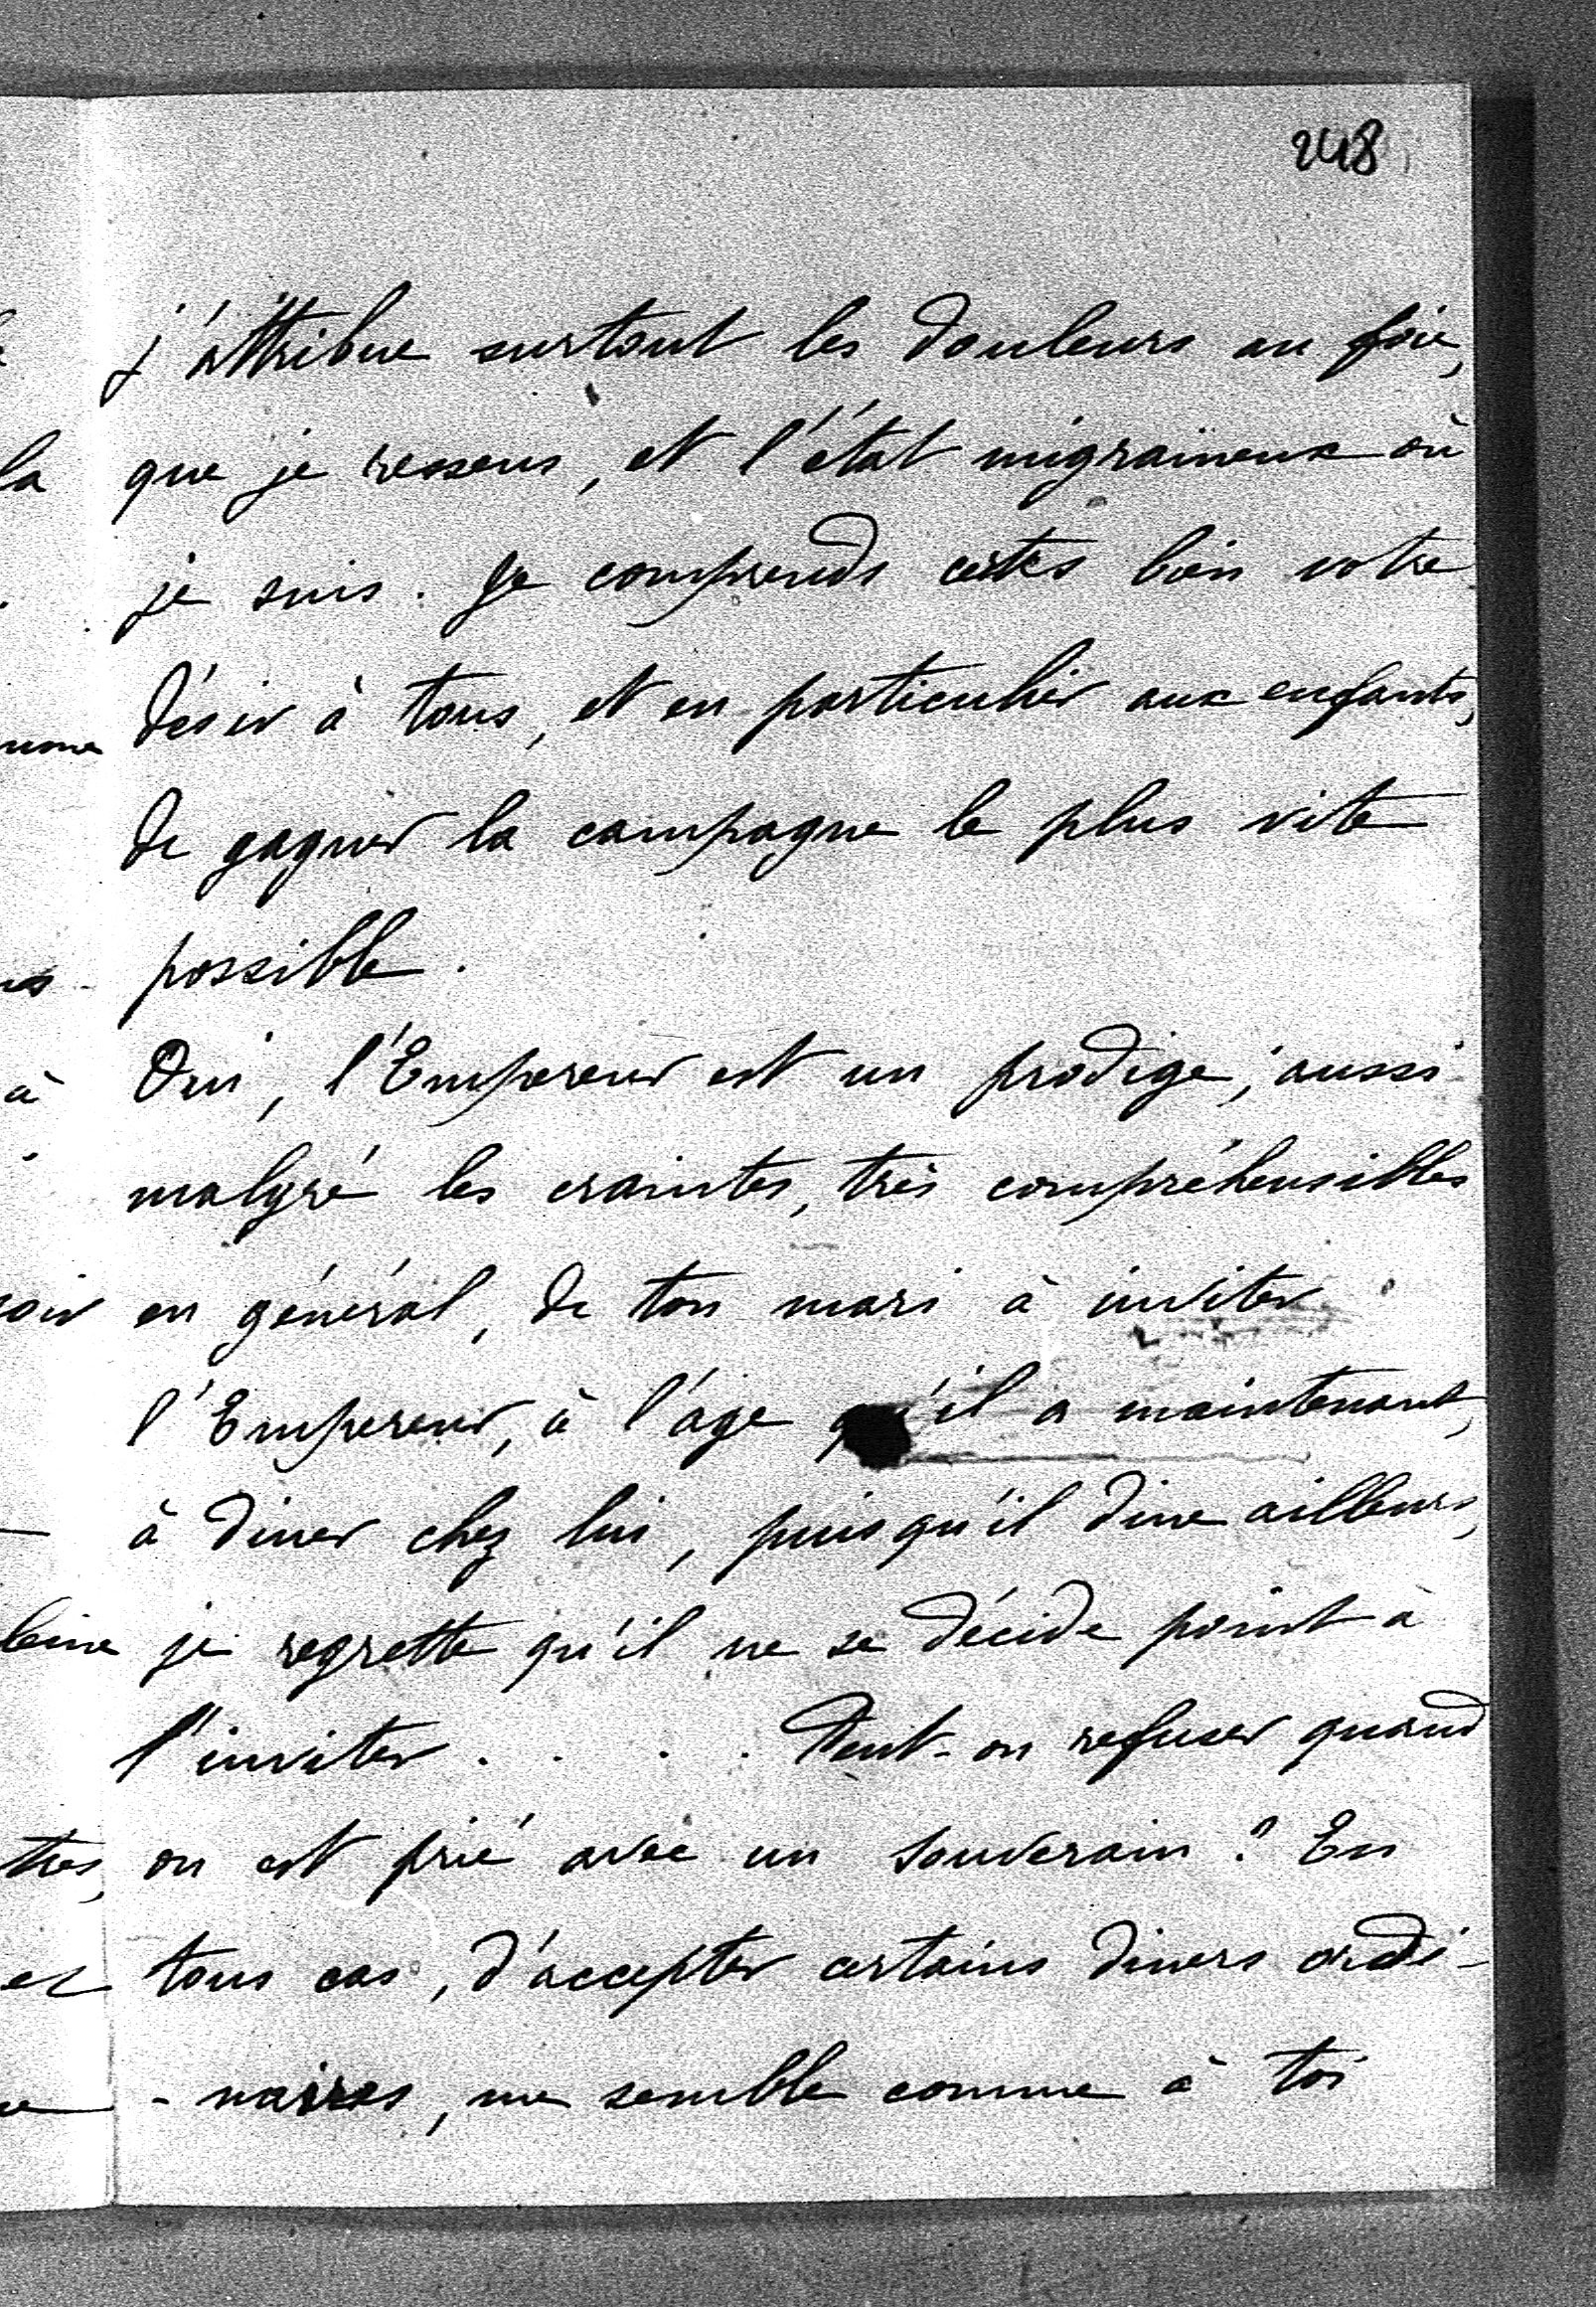 248
j'attribue surtout les douleurs au foie,
que je ressens, et l'état migraineux où
je suis. Je comprends certes bien votre
désir à tous, et en particulier aux enfants,
de gagner la campagne le plus vite
possible.
Oui, l'Empereur est un prodige; aussi
malgré les craintes, très compréhensibles
en général, de ton mari à inviter
l'Empereur, à l'âge qu'il a maintenant,
à diner chez lui, puisqu'il dine ailleurs,
je regrette qu'il ne se décide point à
l'inviter. . . . Peut-on refuser quand
on est prié avec un Souverain? En
tous cas, d'accepter certains diners ordi-
-naires, me semble comme à toi